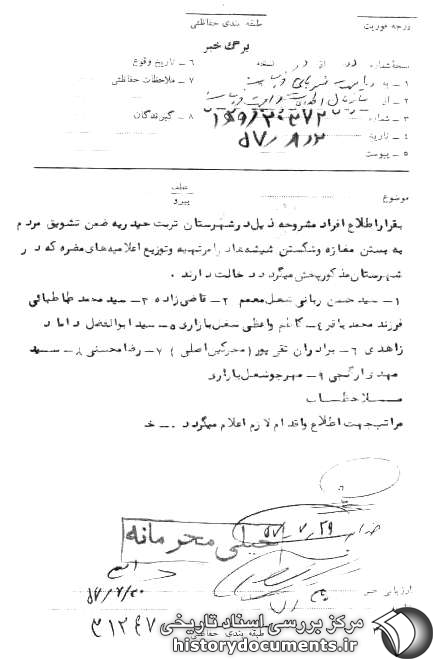 درجه فوریت
طبقه بندی حفاظتی
برگ خبر
نسخه شماره از نسخه
۱ - به ریاست
۲ - از سازمان اطلاعات و امنیت
۳ - شماره
۴ - تاریخ ۵۷/۸/۲
۵ - پیوست
۶ - تاریخ وقوع
۷ - ملاحظات حفاظتی
۸ - گیرندگان
موضوع
عطف
پیرو
بقرار اطلاع افراد مشروحه ذیل در شهرستان تربت حیدریه ضمن تشویق مردم
به بستن مغازه و شکستن شیشه‌ها در تهیه و توزیع اعلامیه‌های مضره که در
شهرستان مذکور پخش میگردد دخالت دارند .
۱ - سید حسن ربانی شغل معمم ۲ - قاضی زاده ۳ - سید محمد طباطبائی
فرزند محمد باقر ۴ - کاظم واعظی شغل بازاری ۵ - سید ابوالفضل داماد
زاهدی ۶ - برادران تقی پور (محرکین اصلی ) ۷ - رضا محسنی ۸ - سید
مهدی ارگجی ۹ - مهرجو شغل بازاری
ملاحظات
مراتب جهت اطلاع و اقدام لازم اعلام میگردد . - خ
۵۷/۷/۲۹
خیلی محرمانه
ارزیابی خبر
۵۷/۷/۳۰
طبقه بندی حفاظتی
۳۱۲۴۷
مرکز بررسی اسناد تاریخی
historydocuments.ir